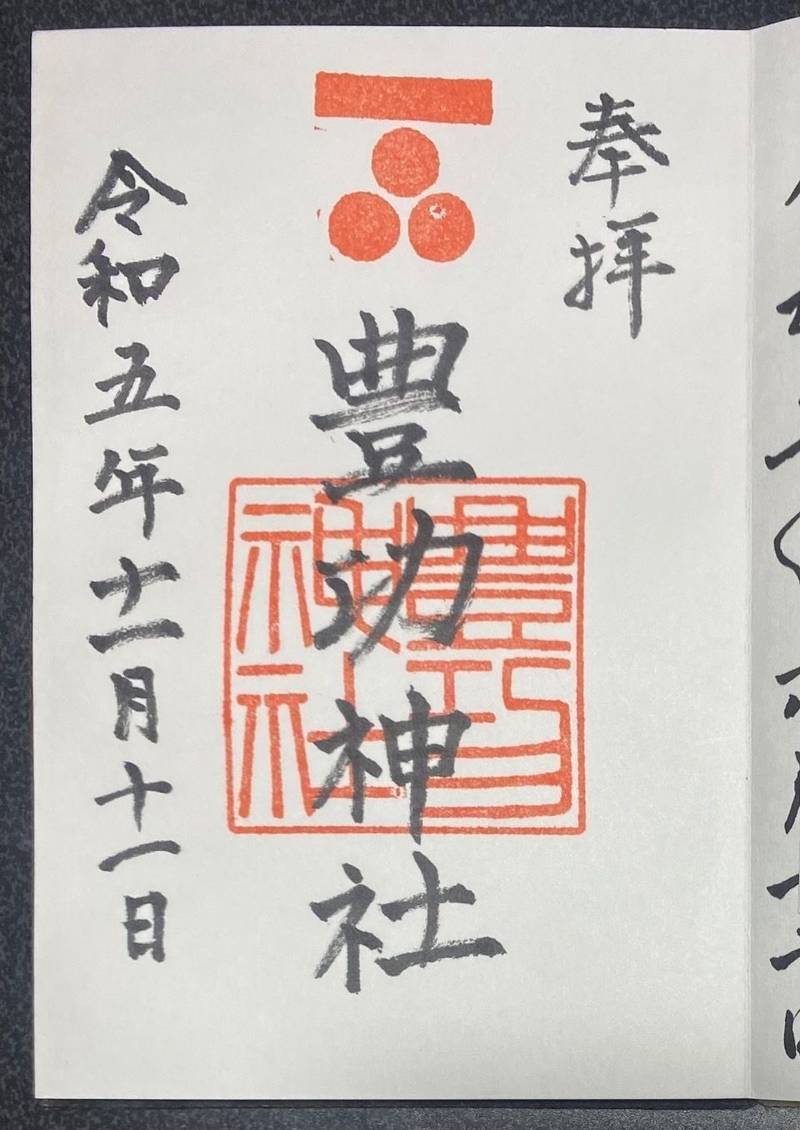 奉拝
豊功神社
豊功神社
令和五年十一月十一日